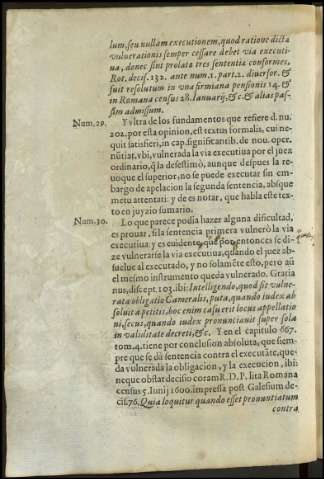 lum, seu nullam executionem, quod ratione dicta
vulnerationis semper cessare debet via executi-
ua, donec sint prolatæ tres sententiæ conformes,
Rot. decis. 132. ante num. 1. part. 2. diuersor. &
fuit resolutum in vna firmiana pensionis 14. &
in Romana census 28. Ianuarij, &c. & alias pas-
sim admissum.
Num. 29. Y vltra de los fundamentos que refiere d. nu.
202. por esta opinion, est textus formalis, cui ne-
quit satisfieri, in cap. significantib. de nou. oper.
nūtiat. vbi, vulnerada la via executiua por el juez
ordinario, q̄ la desestimò, aunque despues la re-
uoque el superior, no se puede executar sin em-
bargo de apelacion la segunda sentencia, absque
metu attentati: y de es notar, que habla este tex-
to en juyzio sumario.
Num. 30. Lo que parece podia hazer alguna dificultad,
es prouar, si la sentencia primera vulnerò la via
executiua: y es euidente que por entonces se di-
ze vulnerarse la via executiua, quando el juez ab-
suelue al executado, y no solamēte esto, pero aũ
el mesmo instrumento queda vulnerado. Gratia
nus, discept. 103. ibi: Intelligendo, quod sit vulne-
rata obligatio Cameralis, puta, quando iudex ab
soluit a petitis, hoc enim casu erit locus appellatio
ni, secus, quando iudex pronuntiauit super sola
in validitate decreti, &c. Y en el capitulo 667.
tom. 4. tiene por conclusion absoluta, que siem-
pre que se dà sentencia contra el executāte, que-
da vulnerada la obligacion, y la execucion, ibi:
neque obstat decisio coram R. D. P. lita Romana
census 5. Iunij 1600. impressa post Galesium de-
cis. 76. Quia loquitur quando esset pronuntiatum
contra